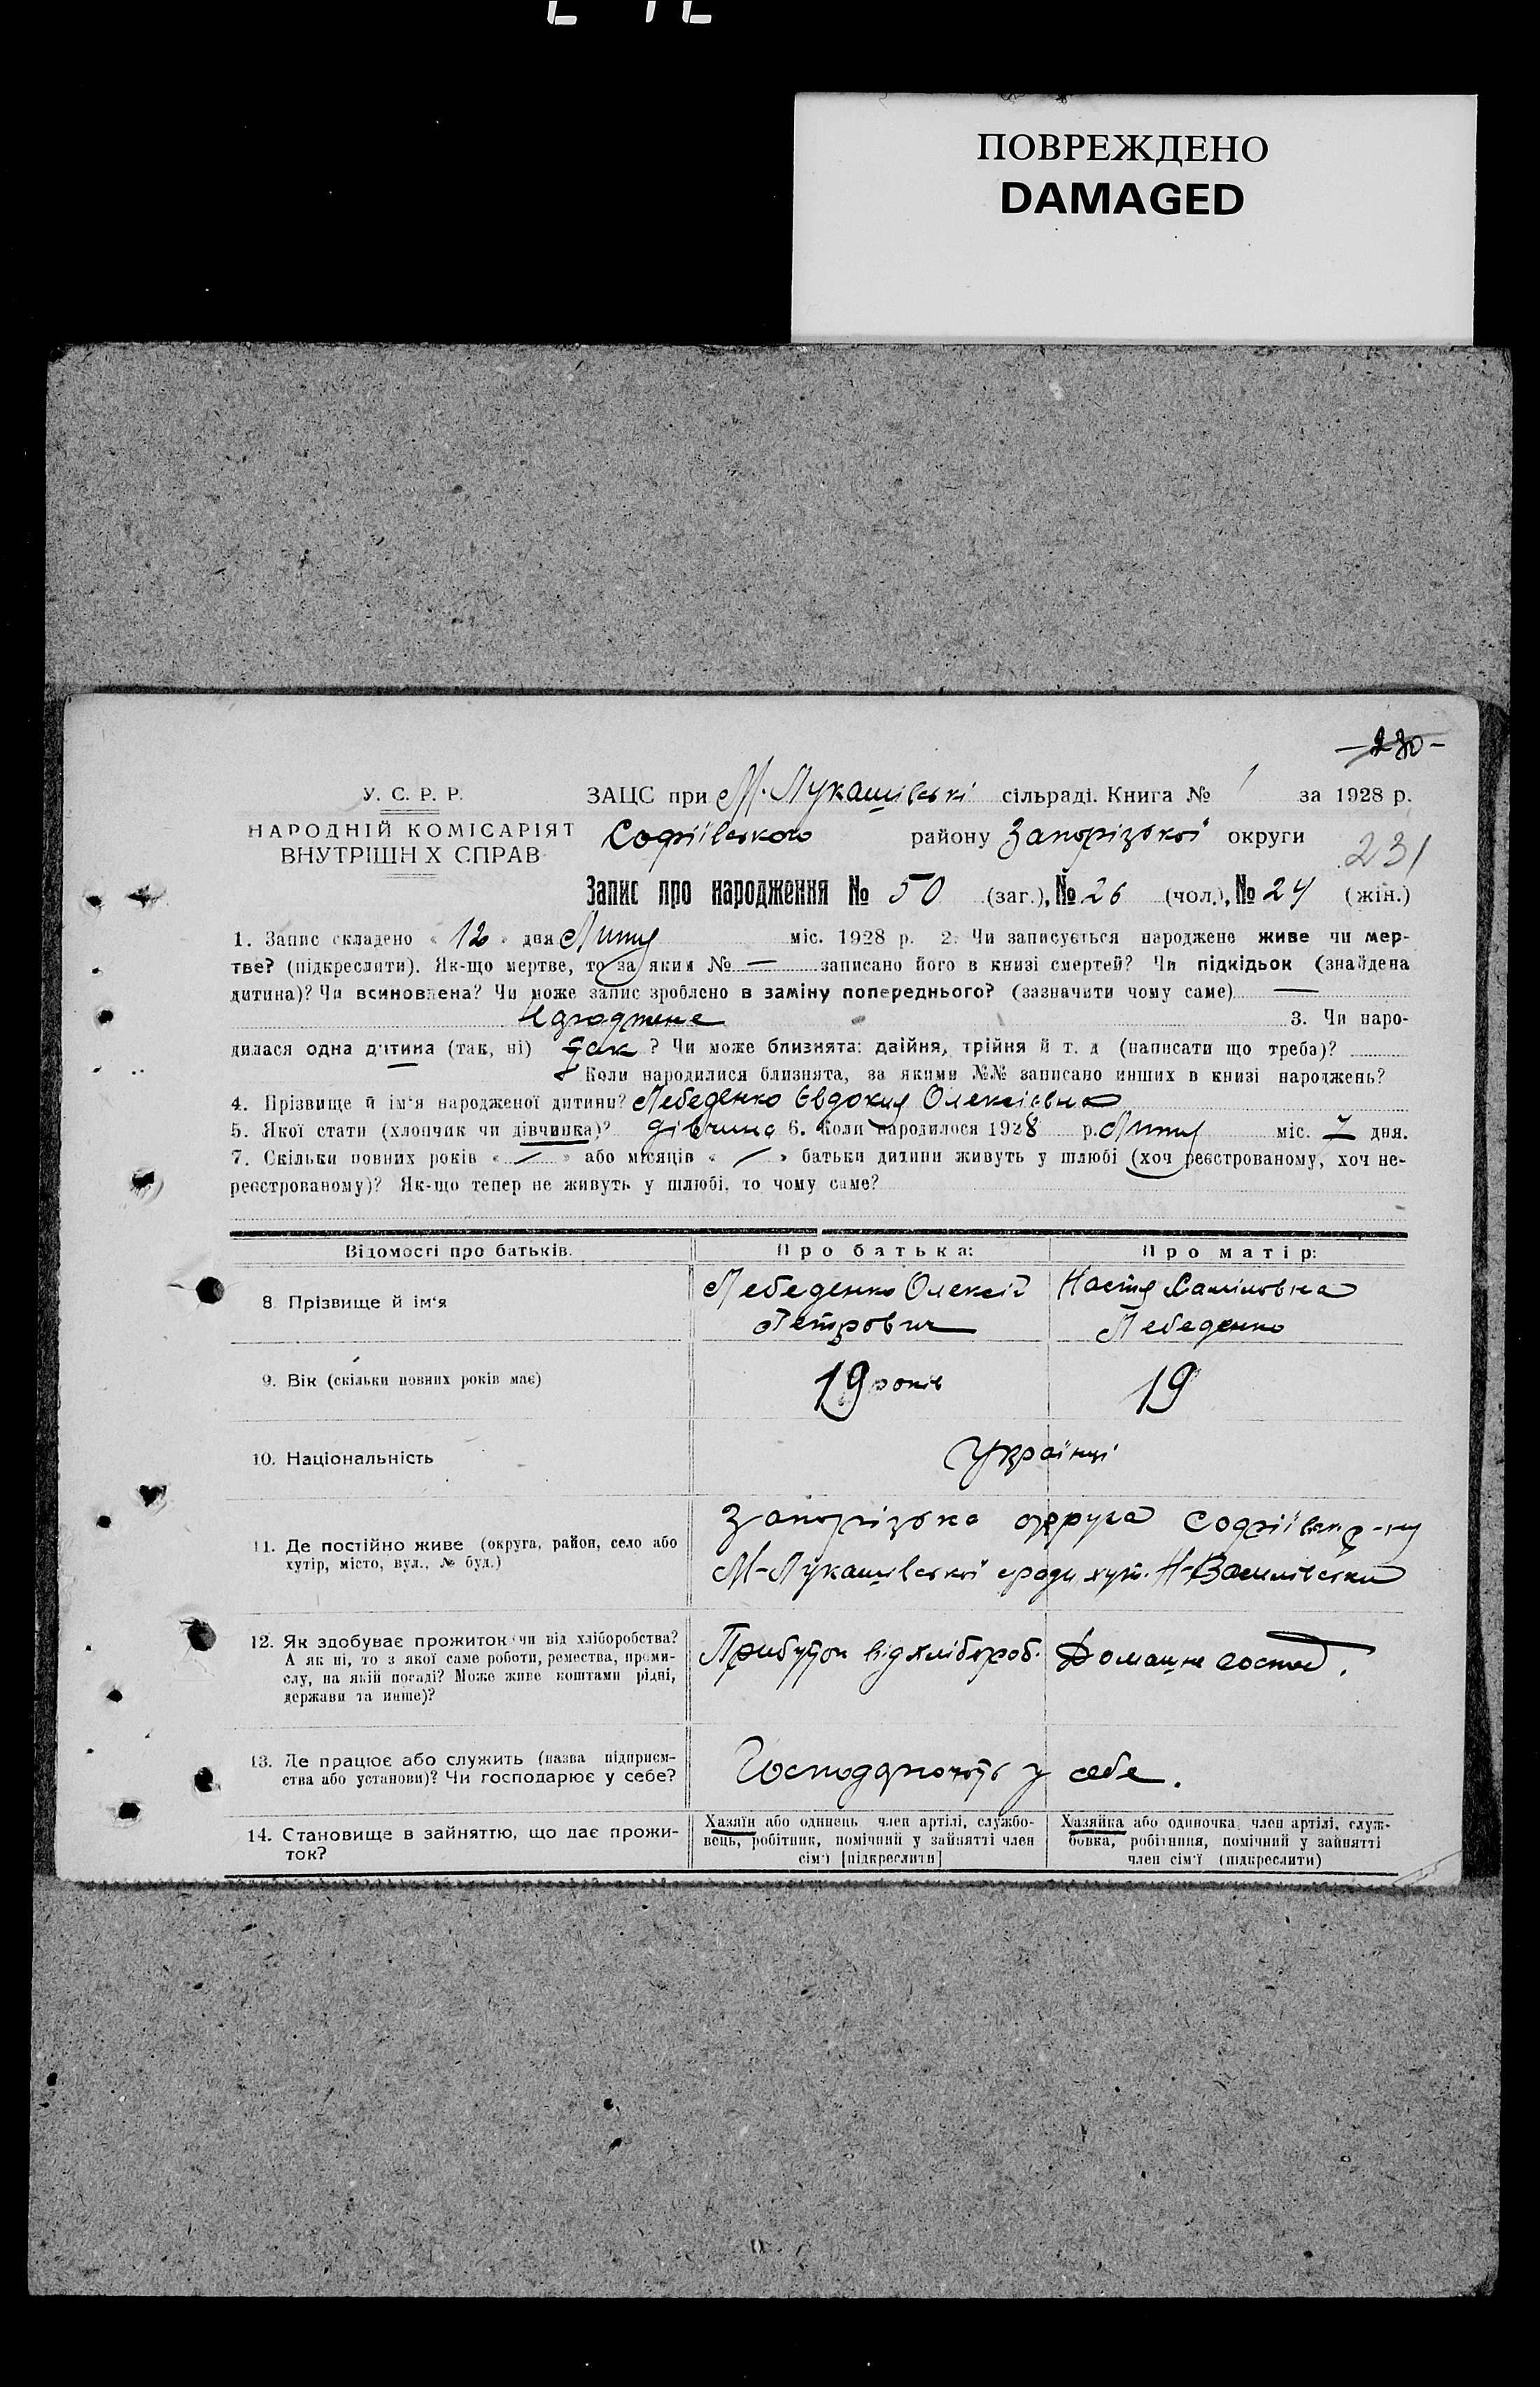 ПОВРЕЖДЕНО
DAMAGED
230
У. С. Р. Р.
НАРОДНІЙ КОМІСАРІЯТ
ВНУТРІШН Х СПРАВ
ЗАЦС при М. Лукашівські сільраді. Книга № 1 за 1928 р.
Софіївського району Запорізької округи
231
Запис про народження № 50 (заг.), № 26 (чол.), № 24 (жін.)
1. Запис складено « 12 » дня Липня міс. 1928 р. 2. Чи записується народжене живе чи мер-
тве? (підкреслити). Як-що мертве, то за яким № — записано його в книзі смертей? Чи підкідьок (знайдена
дитина)? Чи всиновлена? Чи може запис зроблено в заміну попереднього? (зазначити чому саме) —
3. Чи наро-
дилася одна дитина (так, ні) так ? Чи може близнята: двійня, трійня й т. д (написати що треба)?
Коли народилися близнята, за якими №№ записано инших в книзі народжень?
4. Прізвище й ім'я народженої дитини? Лебеденко Євдокия Олексіевна
5. Якої стати (хлопчик чи дівчинка)? дівчина 6. Коли народилося 1928 р. Липня міс. 7 дня.
7. Скільки повних років « — » або місяців « — » батьки дитини живуть у шлюбі (хоч реєстрованому, хоч не-
реєстрованому)? Як-що тепер не живуть у шлюбі, то чому саме?
Відомості про батьків.
Про батька:
Про матір:
8. Прізвище й ім'я
Лебеденко Олексій
Петрович
Настя
Лебеденко
9. Вік (скільки повних років має)
19 років
19
10. Національність
Українці
11. Де постійно живе (округа, район, село або
хутір, місто, вул., № буд.)
Запорізька округа Софіївськ р-ну
М-Лукашівської сради хут. Н-Василівськи
12. Як здобуває прожиток (чи від хліборобства?
А як ні, то з якої саме роботи, ремества, проми-
слу, на якій посаді? Може живе коштами рідні,
держави та инше)?
Прибуток від хлібороб.
Домашне господ.
13. Де працює або служить (назва підприєм-
ства або установи)? Чи господарює у себе?
Господарюють у себе.
14. Становище в зайняттю, що дає прожи-
ток?
Хазяїн або одинець член артілі, службо-
вець, робітник, помічний у зайнятті член
сім'ї [підкреслити]
Хазяйка або одиночка, член артілі, служ-
бовка, робітниця, помічний у зайнятті
член сім'ї (підкреслити)